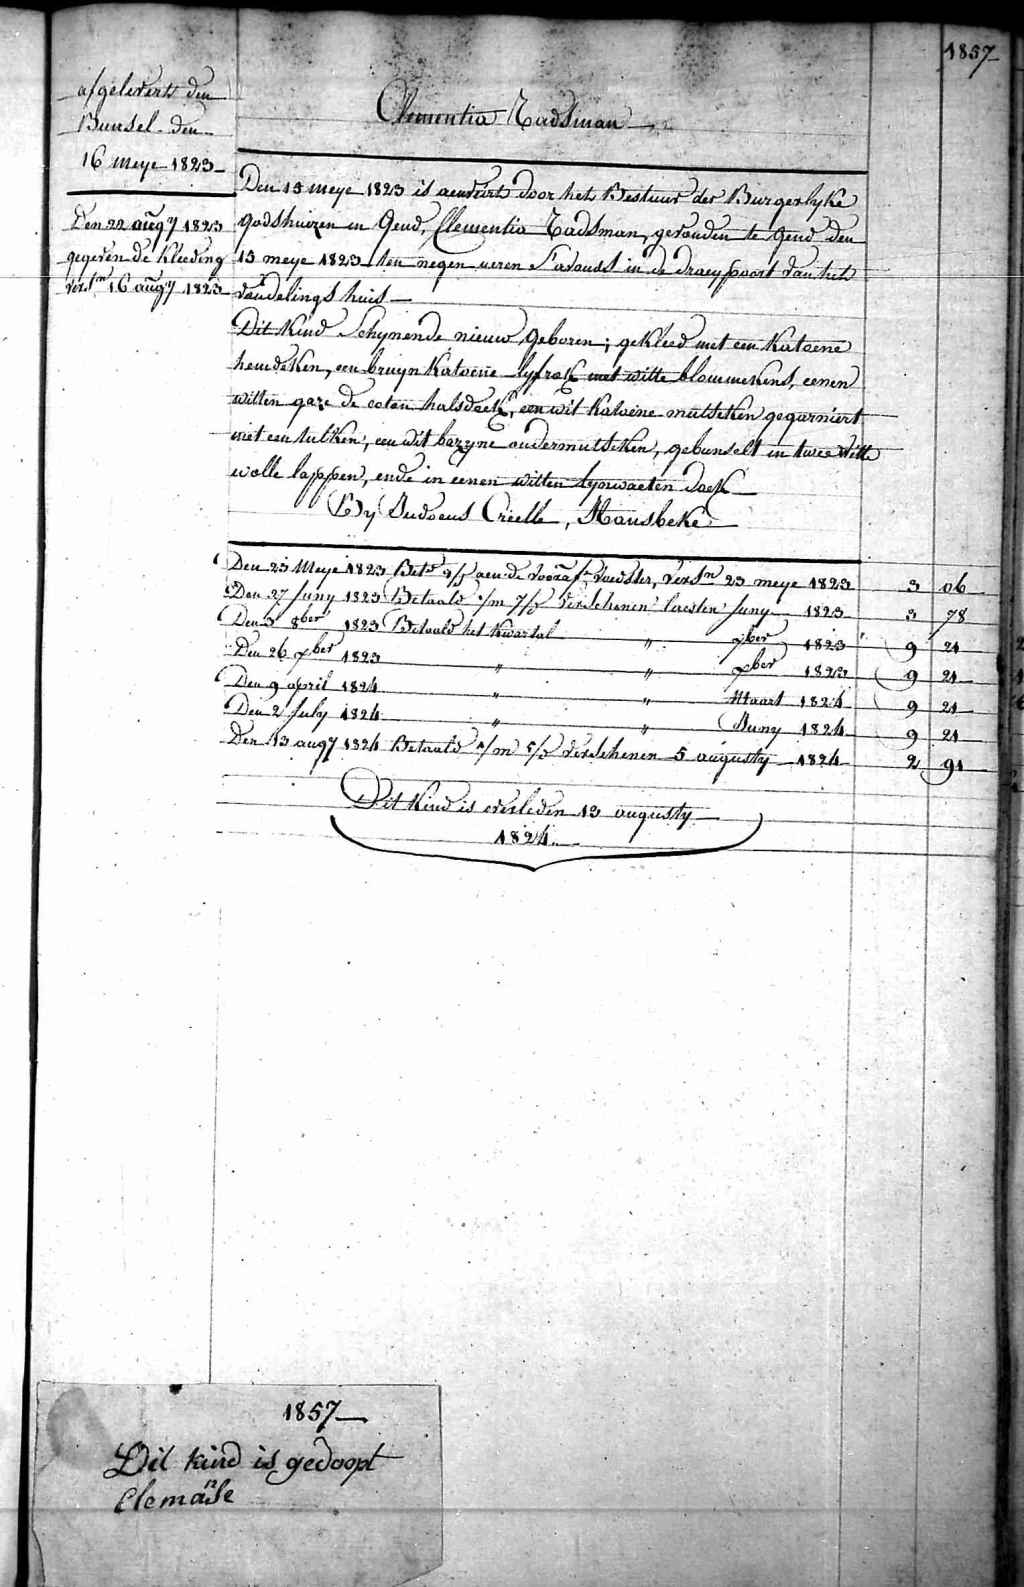 1857
afgeleverts den
Bunsel den
16 meye 1823
Clementia Radsman
Den 22 augy 1823
gegeven de Kleeding
versn 16 augy 1823
Den 15 meye 1823 is aenveirt door het Bestuur der Burgerlyke
godshuizen in Gend, Clementia Radsman, gevonden te Gend den
15 meye 1823 ten negen ueren S'avonds in de draeypoort van het
vondelings huis
Dit Kind Schynende nieuw geboren; gekleed met een Katoene
hemdeken, een bruyn Katoene lyfrok met witte blommekens, eenen
witten gaze de coton halsdoek, een wit Katoene mutseken gegarniert
met een tulken, een wit bazyne ondermutseken, gebunselt in twee witte
wolle lappen, ende in eenen witten lynwaeten doek
By Judocus Crielle, Hansbeke
Den 23 Meye 1823 Betd aen de vooraf voedster, versn 23 meye 1823 3 06
Den 27 Juny 1823 Betaald 1/m 7/d verschenen laesten Juny 1823 3 78
Den 3 8ber 1823 Betaald het Kwartal " 7ber 1823 9 21
Den 26 xber 1823 " " xber 1823 9 21
Den 9 april 1824 " " Maart 1824 9 21
Den 2 July 1824 " " Juny 1824 9 21
Den 13 augy 1824 Betaald 1/m 5/d verschenen 5 augusty 1824 2 91
Dit Kind is overleden 13 augusty
1824.
1857
Dit kind is gedoopt